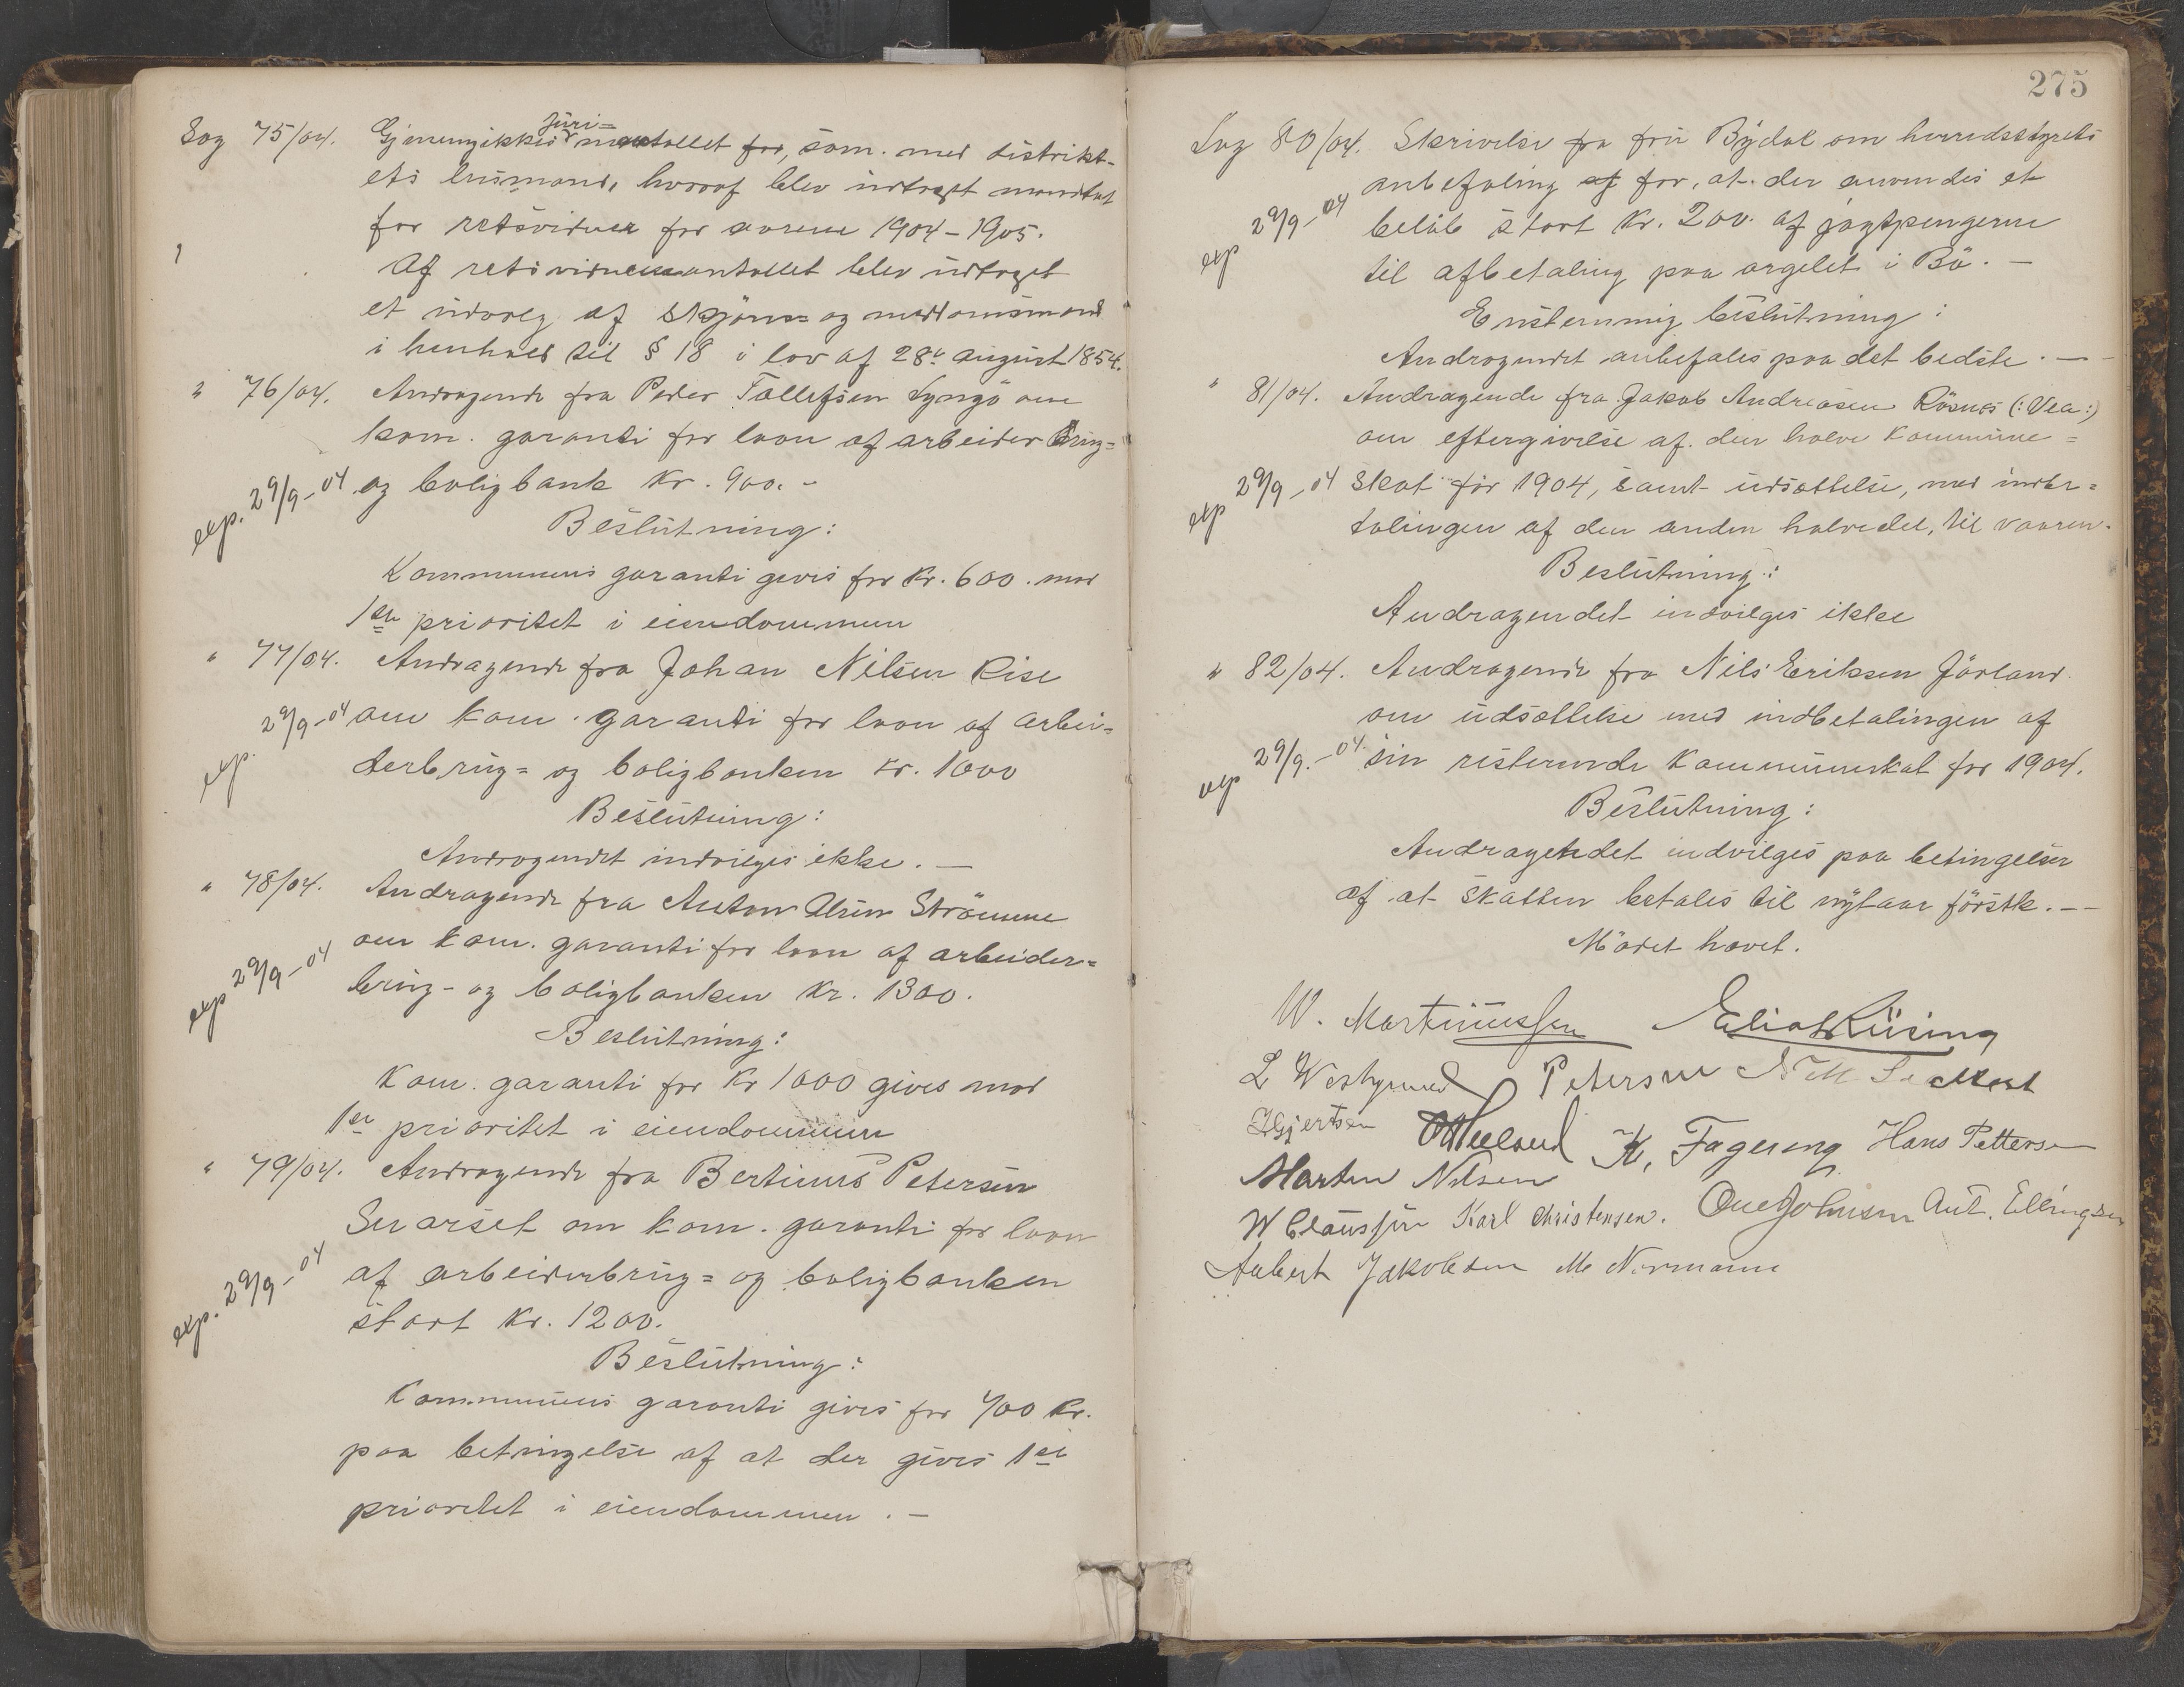 Sag 75/04. Gjennemgikkes jurimantallet for, sam. med distrikt-
ets lensmand, hvoraf blev udtaget mandtal
for retsvidner for aarene 1904-1905.
Af retsvidneantallet blev udtaget
et udvalg af skjøns= og
i henhold til § 18 i lov af 28de august 1854.
" 76/04. Andragende fra Peder Tollefsen Lyngö om
kom. garanti for laan af arbeiderbrug=
exp. 29/9-04 og boligbank Kr. 900. -
Beslutning:
Kommunens garanti gives for Kr. 600. mod
1ste prioritet i eiendommen
" 77/04. Andragende fra Johan Nilsen Rise
exp. 29/9-04 om kom. garanti for laan af arbei=
derbrug= og boligbanken kr. 1000
Beslutning:
Andragendet indvilges ikke. —
" 78/04. Andragende fra Anton Olsen Strömme
om kom. garanti for laan af arbeider=
exp 29/9-04 brug- og boligbanken Kr. 1300.
Beslutning:
Kom. garanti for Kr 1000 gives mod
1ste prioritet i eiendommen
" 79/04. Andragende fra Bertinus Petersen
Svarset om kom. garanti for laan
exp. 29/9-04 af arbeiderbrug= og boligbanken
stort Kr. 1200.
Beslutning:
Kommunens garanti gives for 700 Kr.
paa betingelse af at der gives 1ste
prioritet i eiendommen. —
275
Sag 80/04. Skrivelse fra fru Bydal om herredsstyrets
anbefaling af for, at der anvendes et
exp 29/9-04 beløb stort Kr. 200. af jagtpengerne
til afbetaling paa orgelet i Bö. —
Enstemmig beslutning:
Andragendet anbefales paa det bedste. —
" 81/04. Andragende fra Jakob Andreasen Rösnes (: Vea :)
om eftergivelse af den halve kommune=
exp 29/9-04 skat for 1904, samt udsættelse, med indbe=
talingen af den anden halvedel, til vaaren.
Beslutning:
Andragendet indvilges ikke
" 82/04. Andragende fra Nils Eriksen Jörland
om udsættelse med indbetalingen af
exp 29/9.-04. sin resterende kommuneskat for 1904.
Beslutning:
Andragendet indvilges paa betingelse
af at skatten betales til nytaar förstk. —
Mödet hævet.
W. Martinussen Elias Rüsing
L Petersen
Hgjertsen K. Fagereng Hans Pettersen
Martin Nilsen
W Claussen Karl Christensen. Ole Johnsen Ant. Ellingsen
Aubert Jakobsen M Normann